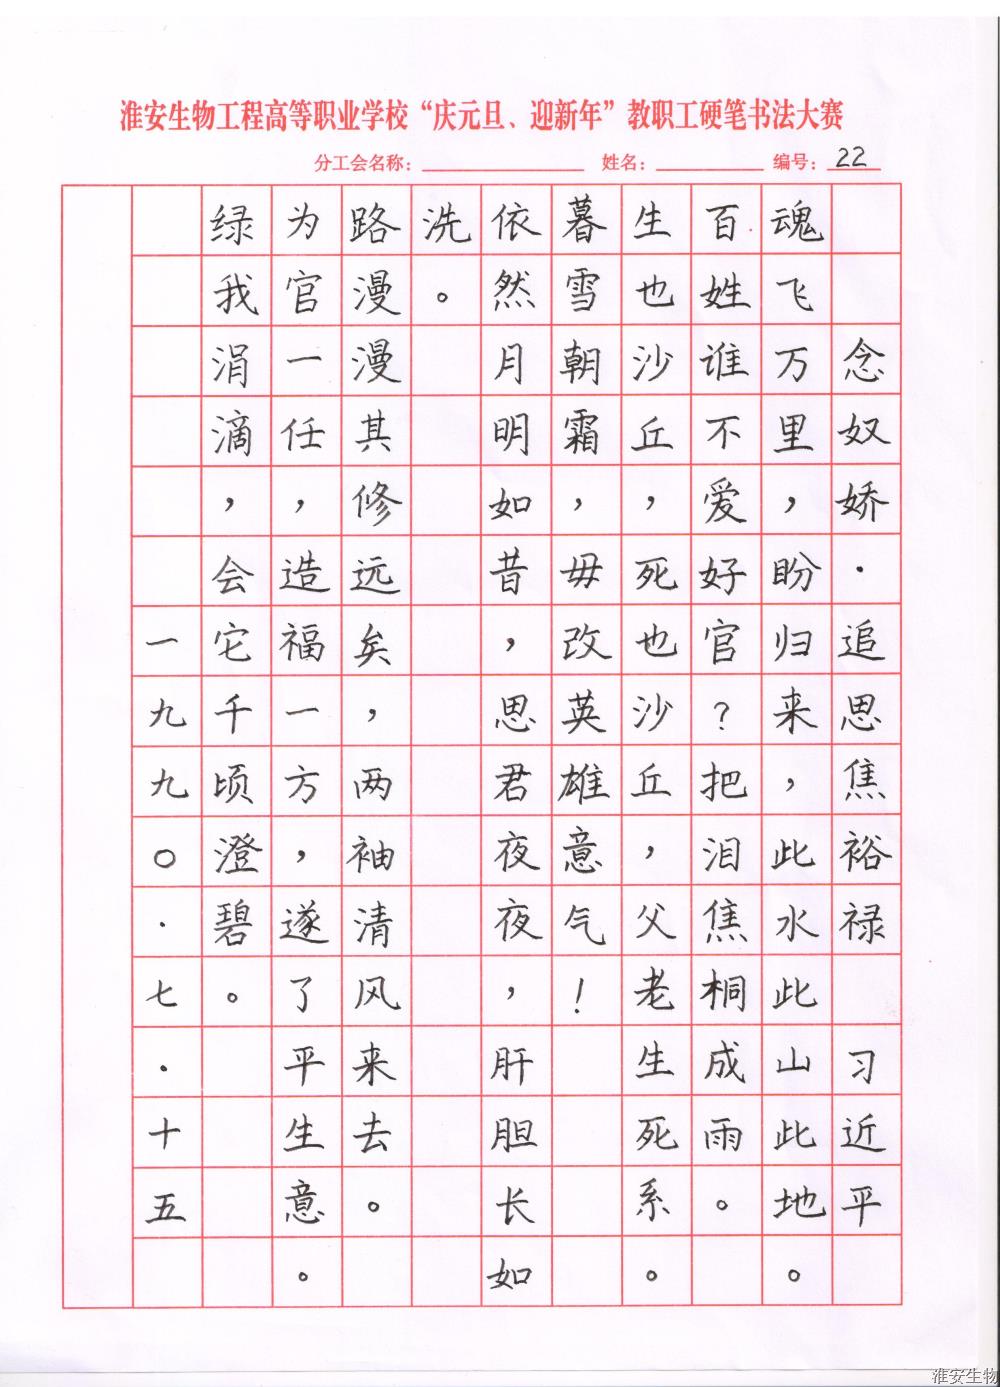 淮安生物工程高等职业学校“庆元旦、迎新年”教职工硬笔书法大赛
分工会名称： 姓名： 编号：22
念奴娇·追思焦裕禄 习近平
魂飞万里，盼归来，此水此山此地。
百姓谁不爱好官？把泪焦桐成雨。
生也沙丘，死也沙丘，父老生死系。
暮雪朝霜，毋改英雄意气！
依然月明如昔，思君夜夜，肝胆长如
洗。
路漫漫其修远矣，两袖清风来去。
为官一任，造福一方，遂了平生意。
绿我涓滴，会它千顷澄碧。
一九九〇·七·十五
淮安生物